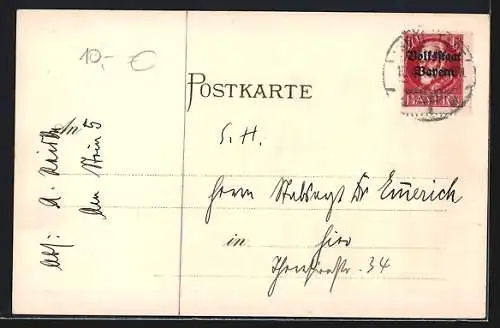 10,- €
POSTKARTE
Volksstaat
Bayern
BAYERN
S. H.
Herrn Stabsarzt Dr Emerich
in hier
34
An
Abs: A.
Am Stein 5